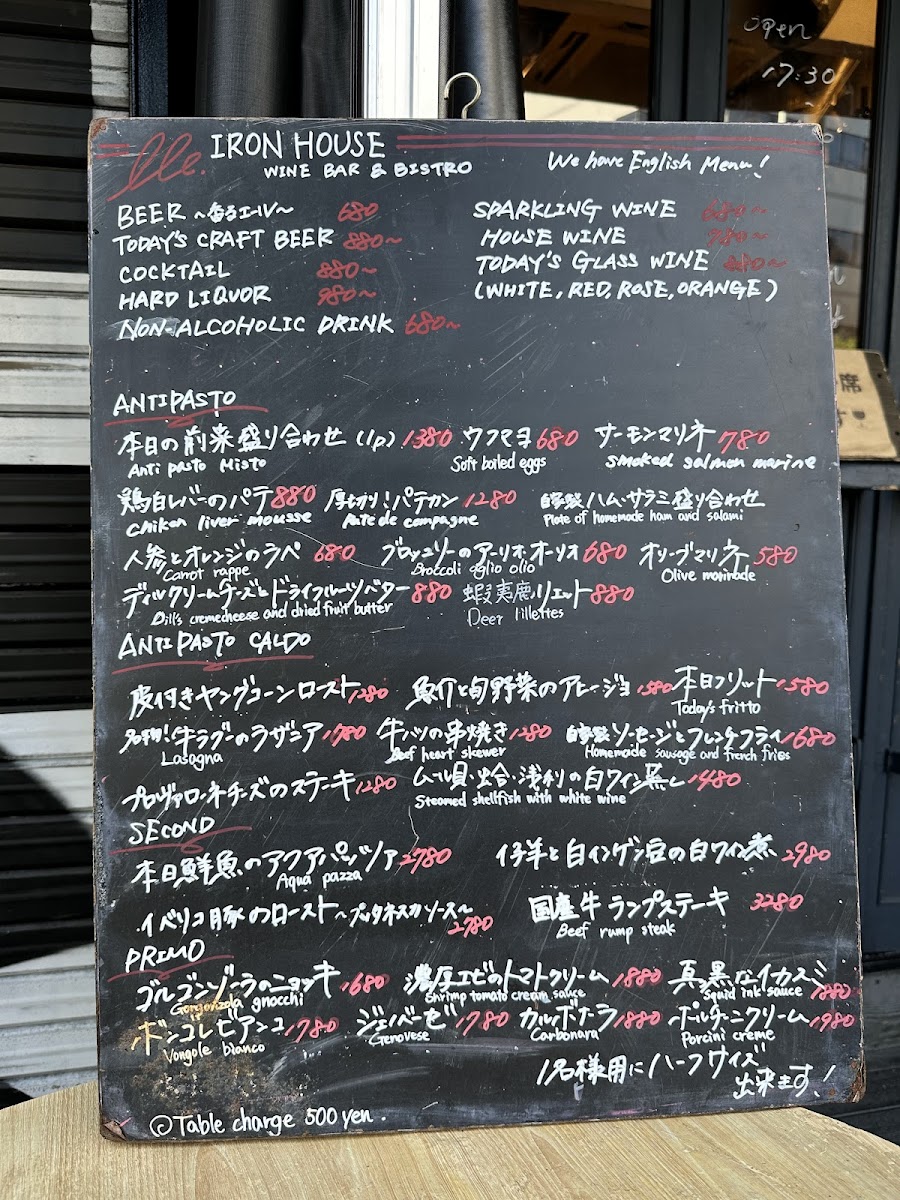 open
17:30
IRON HOUSE
WINE BAR & BISTRO
We have English Menu!
BEER ~香るエール~ 680
TODAY'S CRAFT BEER 880~
COCKTAIL 880~
HARD LIQUOR 980~
NON-ALCOHOLIC DRINK 680~
SPARKLING WINE
HOUSE WINE
TODAY'S GLASS WINE
(WHITE, RED, ROSE, ORANGE)
ANTIPASTO
本日の前菜盛り合わせ (1p) 1380 ウフマヨ 680 サーモンマリネ 780
Anti pasto Misto Soft boiled eggs smoked salmon marine
鶏白レバーのパテ 880 厚切り!パテカン 1280 自家製ハム・サラミ盛り合わせ
chiken liver mousse Pate de campagne Plate of homemade ham and salami
人参とオレンジのラペ 680 ブロッコリーのアーリオ・オーリオ 680 オリーブマリネ 580
Carrot rappe Broccoli aglio olio Olive marinade
ディルクリームチーズとドライフルーツバター 880 蝦夷鹿リエット 880
Dill's cremecheese and dried fruit butter Deer lillettes
ANTIPASTO CALDO
皮付きヤングコーンロースト 1280 魚介と旬野菜のアヒージョ 1580 本日フリット 1580
Today's fritto
名物!牛ラグーのラザニア 1780 牛ハツの串焼き 1280 自家製ソーセージとフレンチフライ 1680
Lasagna Beef heart skewer Homemade sausage and french fries
プロヴァローネチーズのステーキ 1280 ムール貝・蛤・浅利の白ワイン蒸し 1480
Steamed shellfish with white wine
SECOND
本日鮮魚のアクアパッツァ 2780 仔羊と白インゲン豆の白ワイン煮 2980
Aqua pazza
イベリコ豚のロースト~プッタネスカソース~ 2780 国産牛ランプステーキ 3280
Beef rump steak
PRIMO
ゴルゴンゾーラのニョッキ 1680 濃厚エビのトマトクリーム 1880 真黒なイカスミ 1880
Gorgonzola gnocchi Shrimp tomato cream sauce Squid ink sauce
ボンゴレビアンコ 1780 ジェノベーゼ 1780 カルボナーラ 1880 ポルチーニクリーム 1980
Vongole bianco Genovese Carbonara Porcini creme
1名様用にハーフサイズ
出来ます!
◎Table charge 500 yen.
席